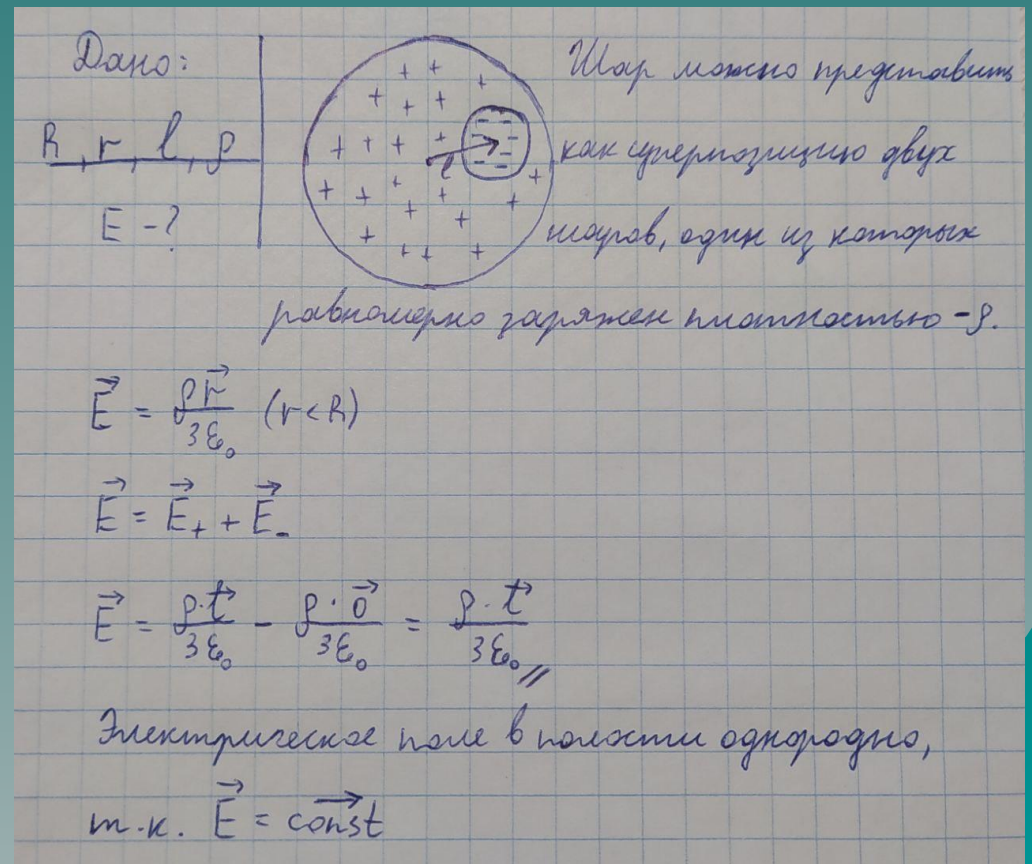 Дано:
R, r, l, ρ
E - ?
Шар можно представить
l
как суперпозицию двух
шаров, один из которых
равномерно заряжен плотностью -ρ.
E⃗ = ρr⃗/3ε₀ (r < R)
E⃗ = E⃗₊ + E⃗₋
E⃗ = ρ·l⃗/3ε₀ - ρ·0⃗/3ε₀ = ρ·l⃗/3ε₀ //
Электрическое поле в полости однородно,
т.к. E⃗ = const⃗